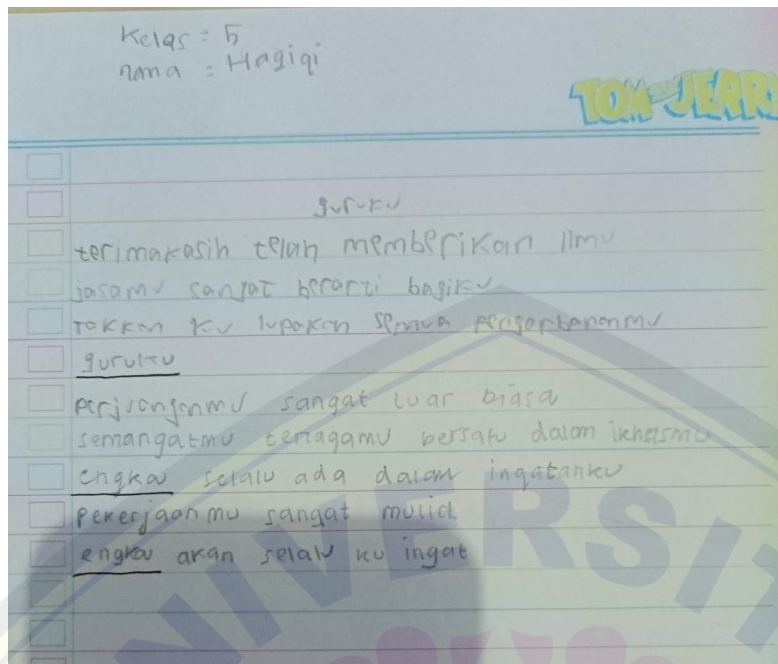 Kelas = 5
nama = Hagiqi
TOM and JERRY
guruku
terimakasih telah memberikan Ilmu
jasamu sangat berarti bagiku
Takkan ku lupakan semua pengorbananmu
guruku
perjuanganmu sangat luar biasa
semangatmu tenagamu bersatu dalam ikhlasmu
engkau selalu ada dalam ingatanku
pekerjaanmu sangat mulia
engkau akan selalu ku ingat
UNIVERSIT